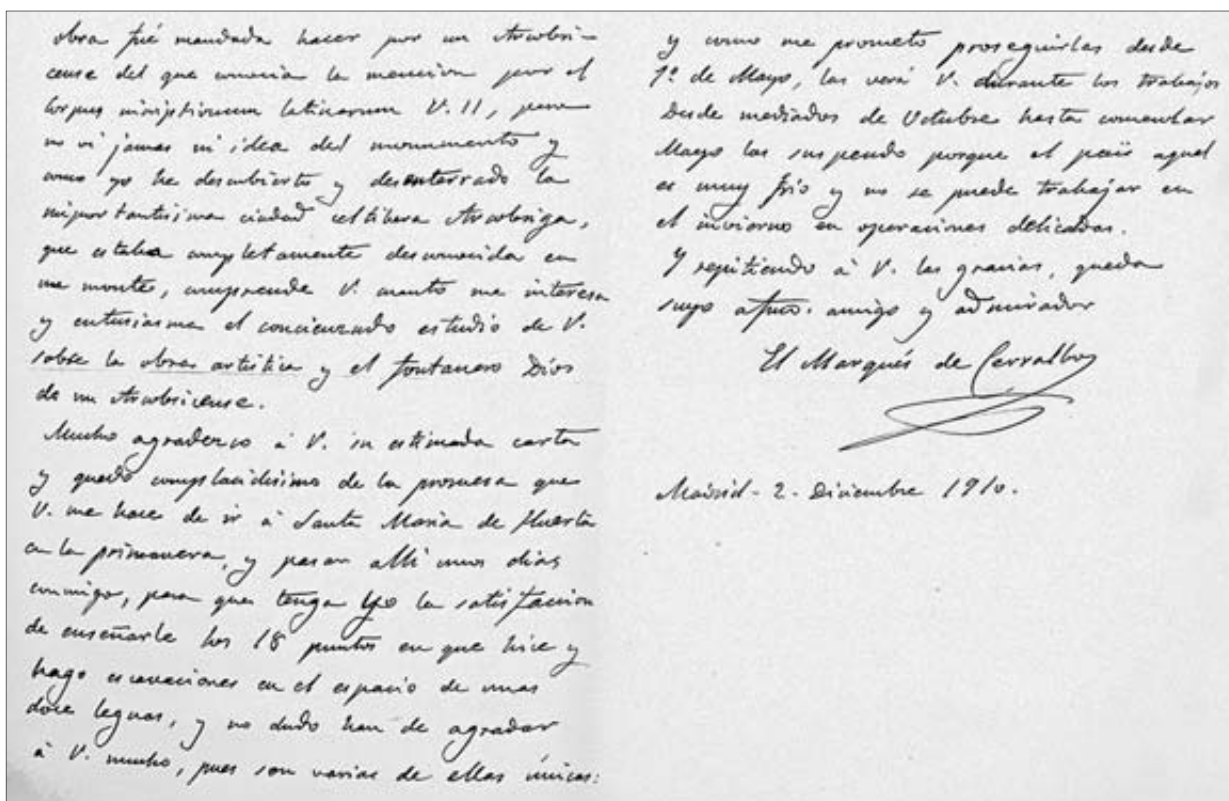 obra fué mandada hacer por un Arcobri-
cense del que conocia la mencion por el
Corpus inscriptionum latinarum V. II, pero
no vi jamas ni idea del monumento y
como yo he descubierto y desenterrado la
importantisima ciudad celtibera Arcobriga,
que estaba completamente desconocida en
me monte, comprende V. cuanto me interesa
y entusiasma el concienzudo estudio de V.
sobre la obra artistica y el fontanero Dios
de un Arcobricense.
Mucho agradezco á V. su estimada carta
y quedo complacidisimo de la promesa que
V. me hace de ir á Santa Maria de Huerta
en la primavera, y pasar alli unos dias
conmigo, para que tenga yo la satisfaccion
de enseñarle los 18 puntos en que hice y
hago escavaciones en el espacio de unas
doce leguas, y no dudo han de agradar
á V. mucho, pues son varias de ellas únicas:
y como me prometo proseguirlas desde
1º de Mayo, las verá V. durante los trabajos
Desde mediados de Octubre hasta comenzar
Mayo las suspendo porque el païs aquel
es muy frio y no se puede trabajar en
el invierno en operaciones delicadas.
Y repitiendo á V. las gracias, queda
suyo afmo. amigo y admirador
El Marqués de Cerralbo
Madrid - 2 - Diciembre 1910.